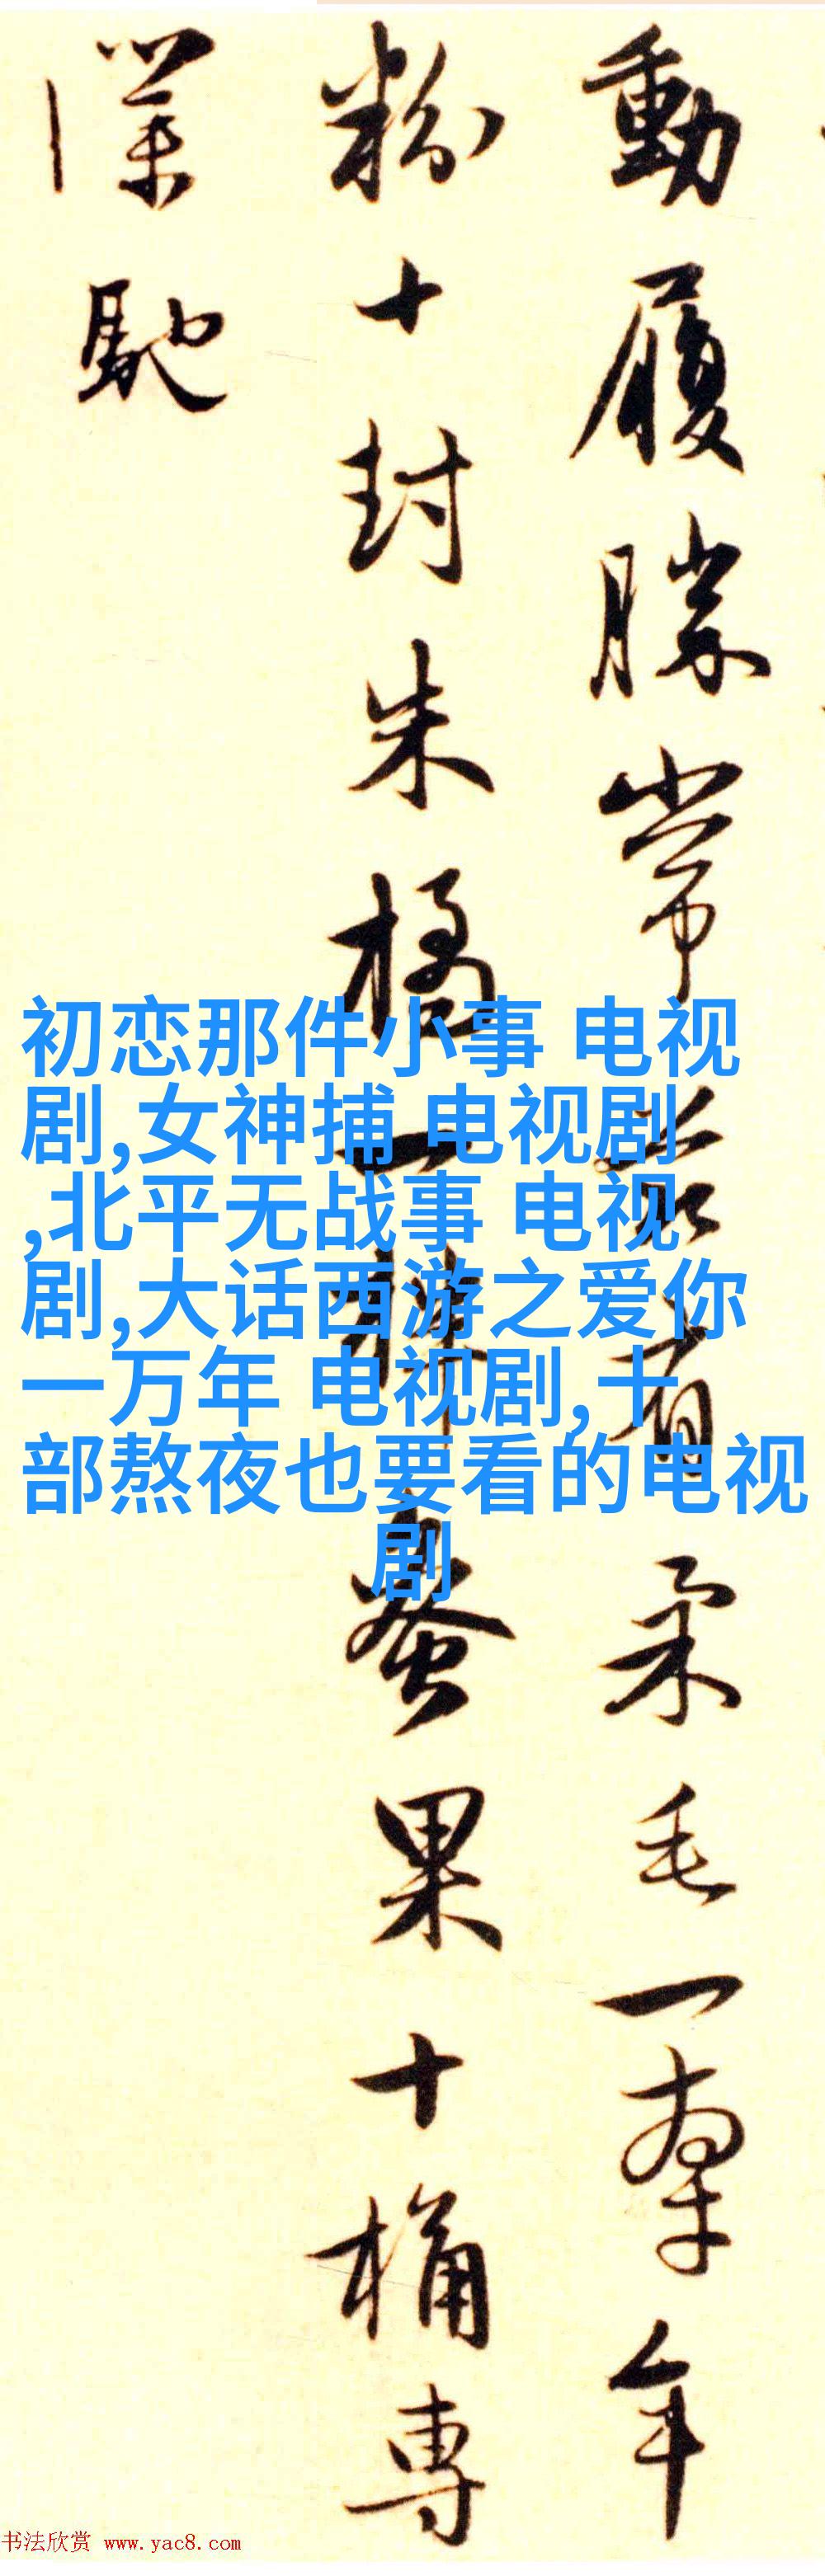 動履勝常兹有柔毛一牽年
粉十封朱橘一蚕果十桶專
僕馳
初恋那件小事 电视
剧,女神捕 电视剧
,北平无战事 电视
剧,大话西游之爱你
一万年 电视剧,十
部熬夜也要看的电视
剧
书法欣赏 www.yac8.com